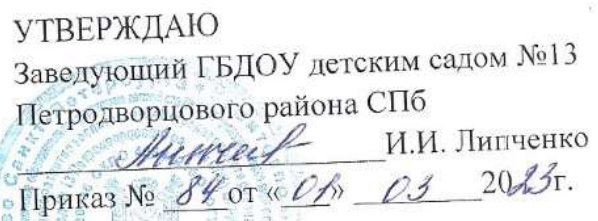 УТВЕРЖДАЮ
Заведующий ГБДОУ детским садом №13
Петродворцового района СПб
И.И. Липченко
Приказ № 84 от «01» 03 2023г.